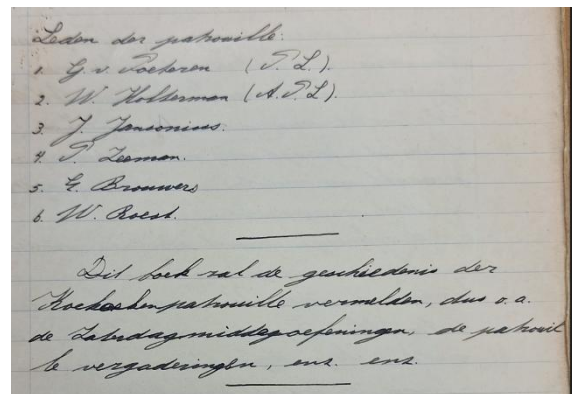 Leden der patrouille:
1. G. v. Poeteren (P.L.).
2. W. Holterman (A.P.L).
3. J. Jansonius.
4. P. Leeman.
5. G. Brouwers
6. W. Roest.
Dit boek zal de geschiedenis der
Koekoekenpatrouille vermelden, dus o.a.
de Zaterdagmiddagoefeningen, de patrouil
le vergaderingen, enz. enz.